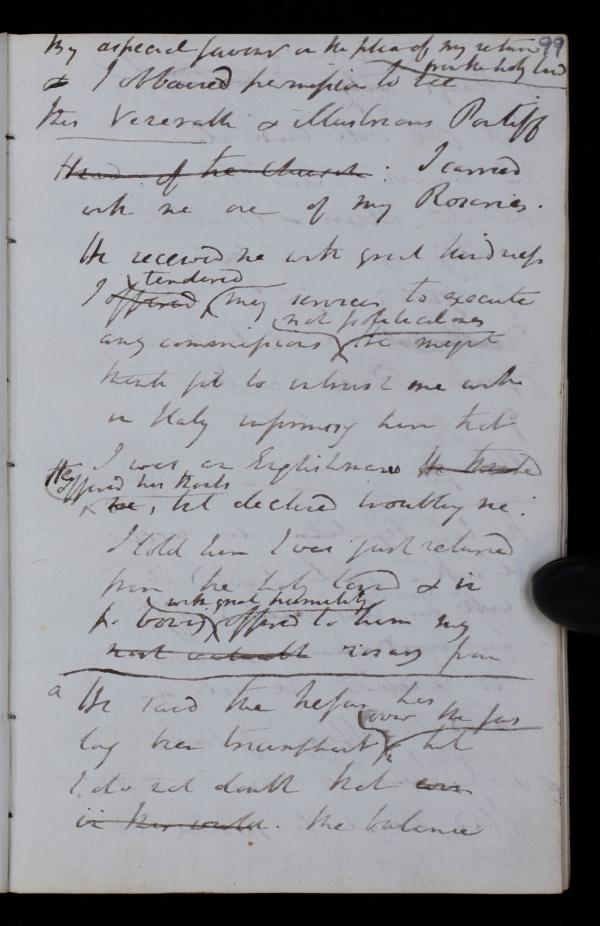 99
By especial favour on the plea of my return
from the holy land
& I obtained permission to see
this Venerable & illustrious Pontiff
Head of the Church. I carried
with me one of my Rosaries.
He received me with great kindness
tendered
I offered my services to execute
not political ones
any commissions he might
think fit to intrust me with
in Italy informing him that
I was an Englishman He thanked
He offered his thanks
me, but declined troubling me.
I told him I was just returned
from the holy land &
with great humility
offered to him my
most valuable rosary from
a He said the nefas has
over the fas
long been triumphant but
I do not doubt that even
in this world. the balance